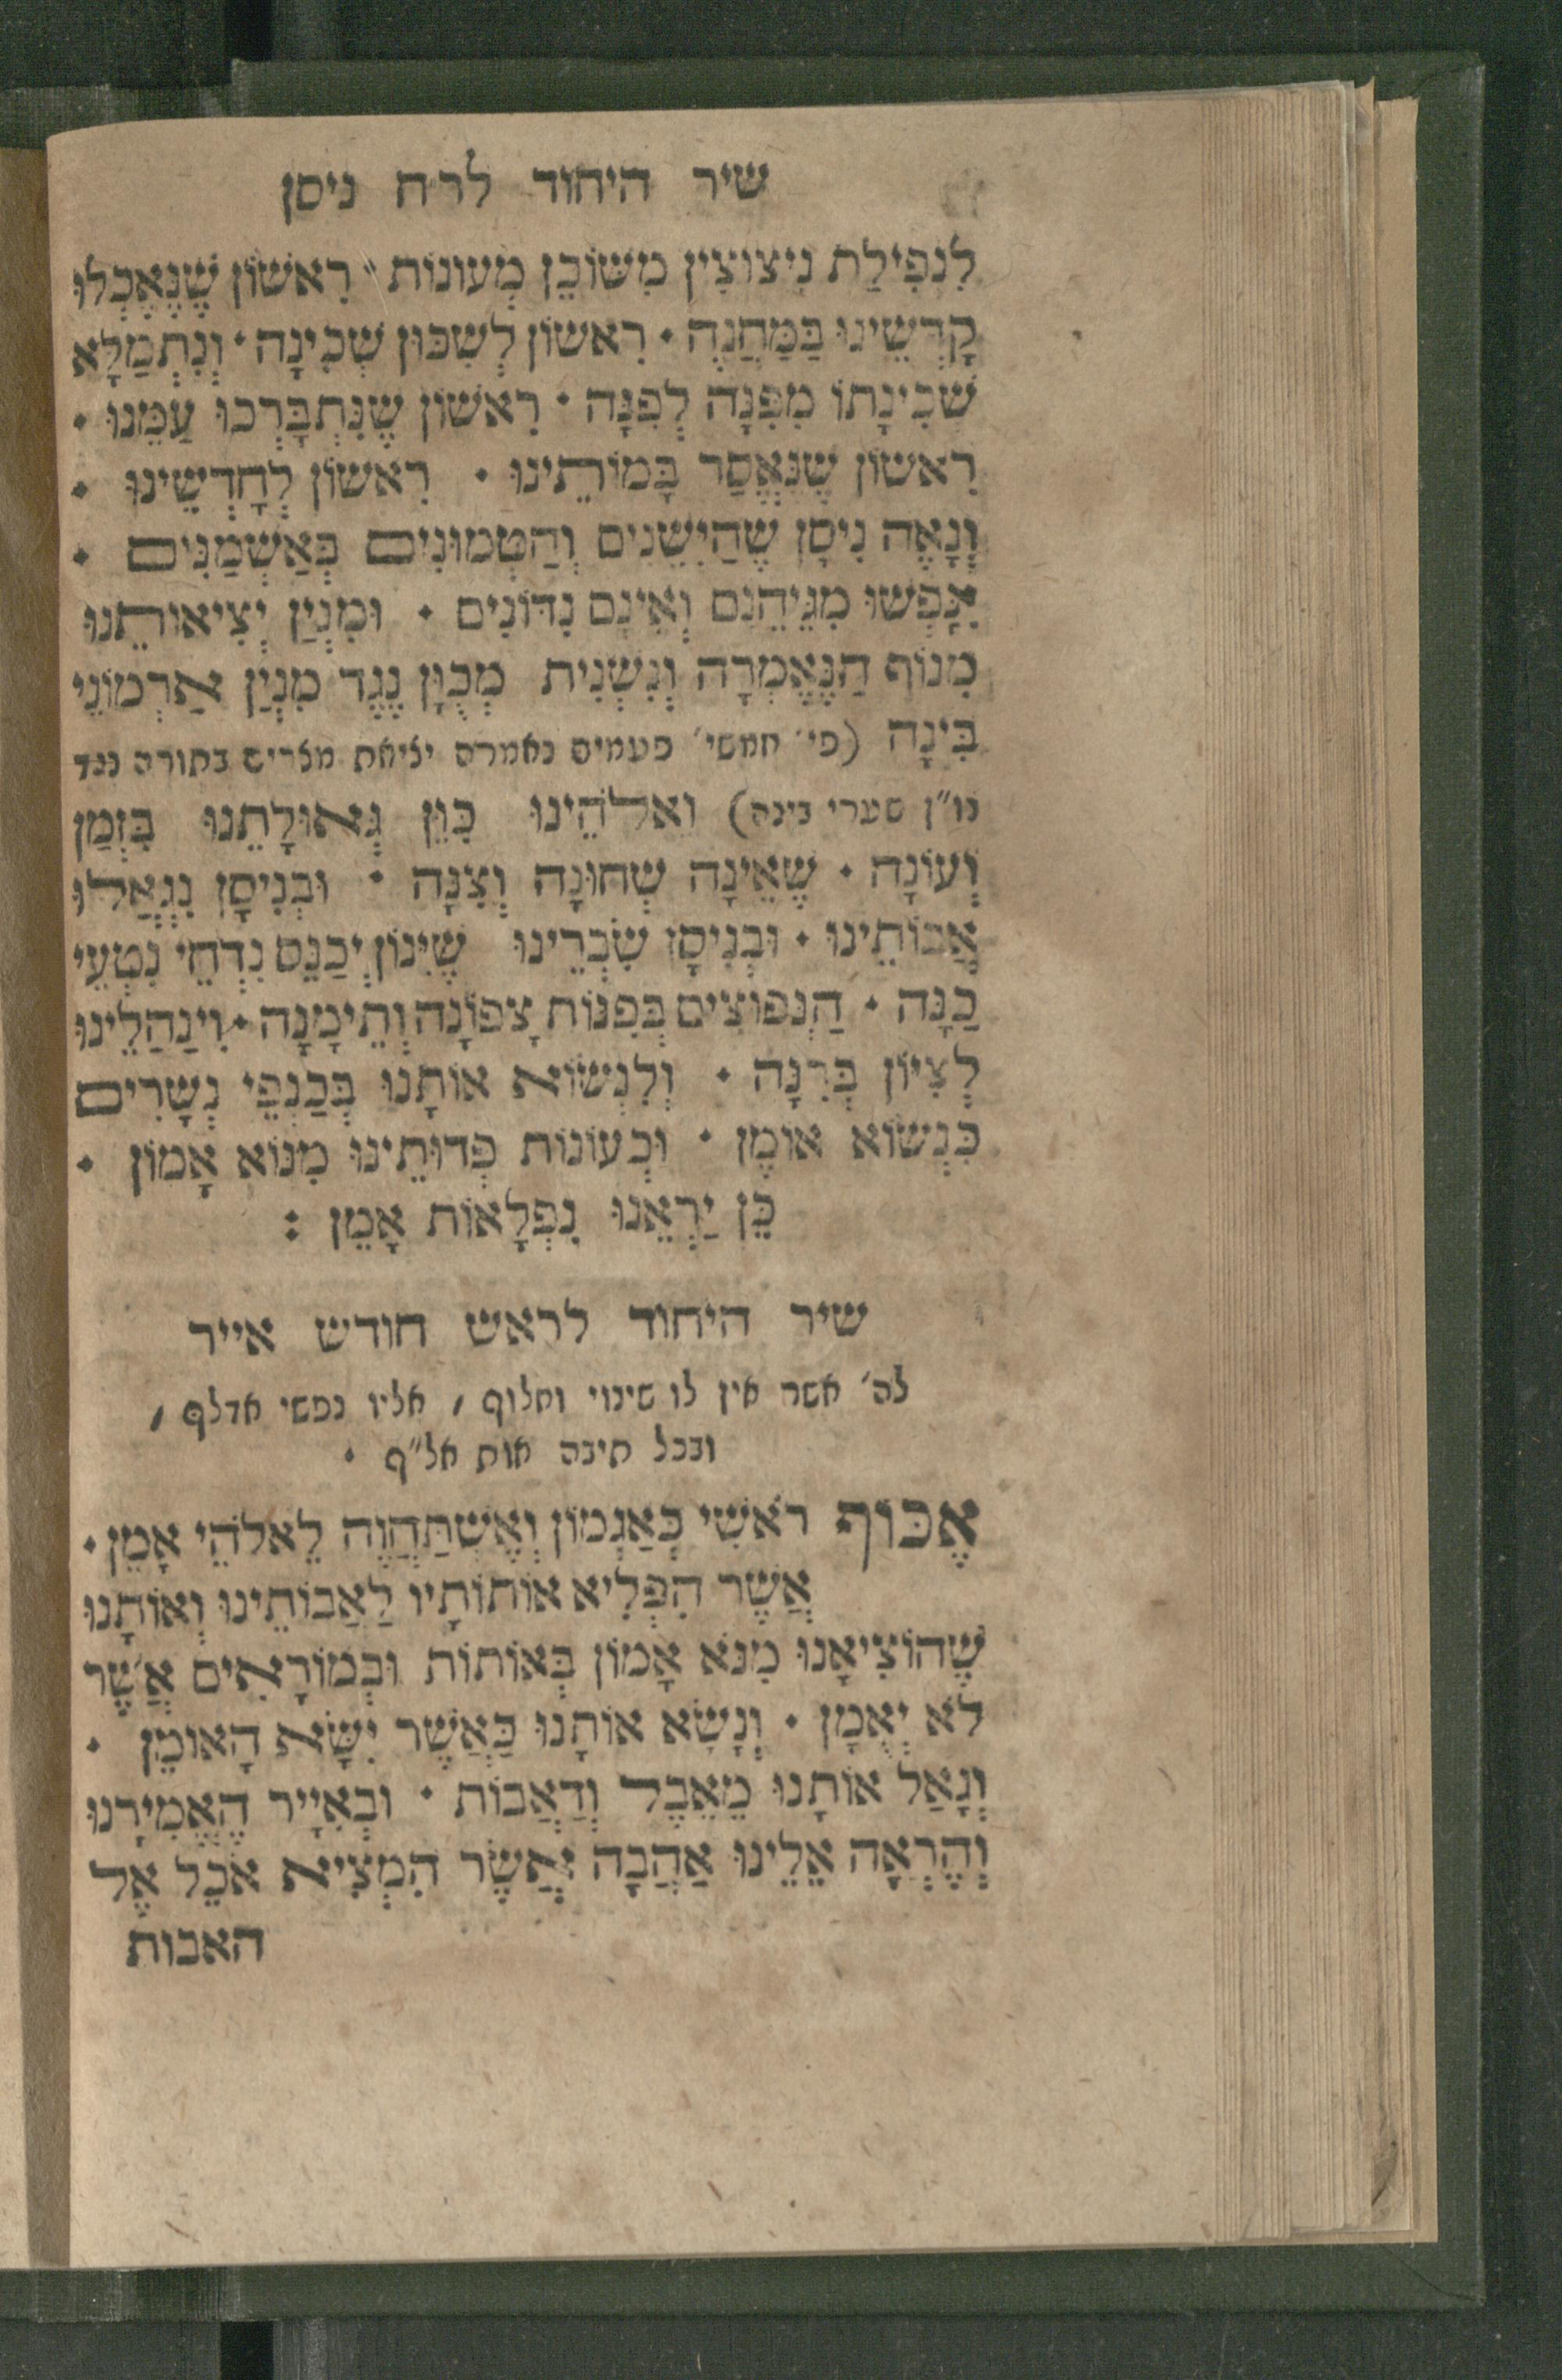 שיר היחוד לרח ניסן
לִנְפִילַת נִיצוּצִין מִשּׁוֹכֵן מְעוֹנוֹת · רִאשׁוֹן שֶׁנֶּאֶכְלוּ
קָדָשֵׁינוּ בַּמַּחֲנֶה · רִאשׁוֹן לְשִׁכּוּן שְׁכִינָה · וְנִתְמַלָּא
שְׁכִינָתוֹ מִפִּנָּה לְפִנָּה · רִאשׁוֹן שֶׁנִּתְבָּרְכוּ עַמֵּנוּ ·
רִאשׁוֹן שֶׁנֶּאֱסַר בָּמוֹתֵינוּ · רִאשׁוֹן לְחָדְשֵׁינוּ ·
וְנָאֶה נִיסָן שֶׁהַיְשֵׁנִים וְהַטְּמוּנִים בְּאַשְׁמַנִּים ·
נָפְשׁוּ מִגֵּיהִנֹּם וְאֵינָם נִדּוֹנִים · וּמִנְיַן יְצִיאוֹתֵנוּ
מִנּוֹף הַנֶּאֱמְרָה וְנִשְׁנֵית מְכֻוָּן נֶגֶד מִנְיַן אַרְמוֹנֵי
בִּינָה (פי׳ חמשי׳ פעמים נאמרה יציאת מצרים בתורה נגד
נו״ן שערי בינה) וֵאלֹהֵינוּ כִּוֵּן גְּאוּלָּתֵנוּ בִּזְמַן
וְעוֹנָה · שֶׁאֵינָהּ שְׁחוּנָה וְצִנָּה · וּבְנִיסָן נִגְאֲלוּ
אֲבוֹתֵינוּ · וּבְנִיסָן שִׂבְרֵינוּ שֶׁיִּנּוֹן יְכַנֵּס נִדְחֵי נִטְעֵי
כַנָּה · הַנְּפוֹצִים בְּפִנּוֹת צָפוֹנָה וְתֵימָנָה · וִינַהֲלֵינוּ
לְצִיּוֹן בְּרִנָּה · וְלִנְשׂוֹא אוֹתָנוּ בְּכַנְפֵי נְשָׁרִים
כִּנְשׂוֹא אוֹמֶן · וּכְעוֹנוֹת פְּדוּתֵינוּ מִנּוֹא אָמוֹן ·
כֵּן יַרְאֵנוּ נִפְלָאוֹת אָמֵן :
שיר היחוד לראש חודש אייר
לה׳ אשר אין לו שינוי וחלוף , אליו נפשי אדלף ,
ובכל תיבה אות אל״ף ·
אֶכּוֹף רֹאשִׁי כְּאַגְמוֹן וְאֶשְׁתַּחֲוֶה לֵאלֹהֵי אָמֵן ·
אֲשֶׁר הִפְלִיא אוֹתוֹתָיו לַאֲבוֹתֵינוּ וְאוֹתָנוּ
שֶׁהוֹצִיאָנוּ מִנֹּא אָמוֹן בְּאוֹתוֹת וּבְמוֹרָאִים אֲשֶׁר
לֹא יְאֻמָן · וְנָשָׂא אוֹתָנוּ כַּאֲשֶׁר יִשָּׂא הָאוֹמֵן ·
וְגָאַל אוֹתָנוּ מֵאֵבֶל וְדַאֲבוֹת · וּבְאִיָּיר הֶאֱמִירָנוּ
וְהֶרְאָה אֵלֵינוּ אַהֲבָה אֲשֶׁר הִמְצִיא אֹכֶל אֶל
האבות